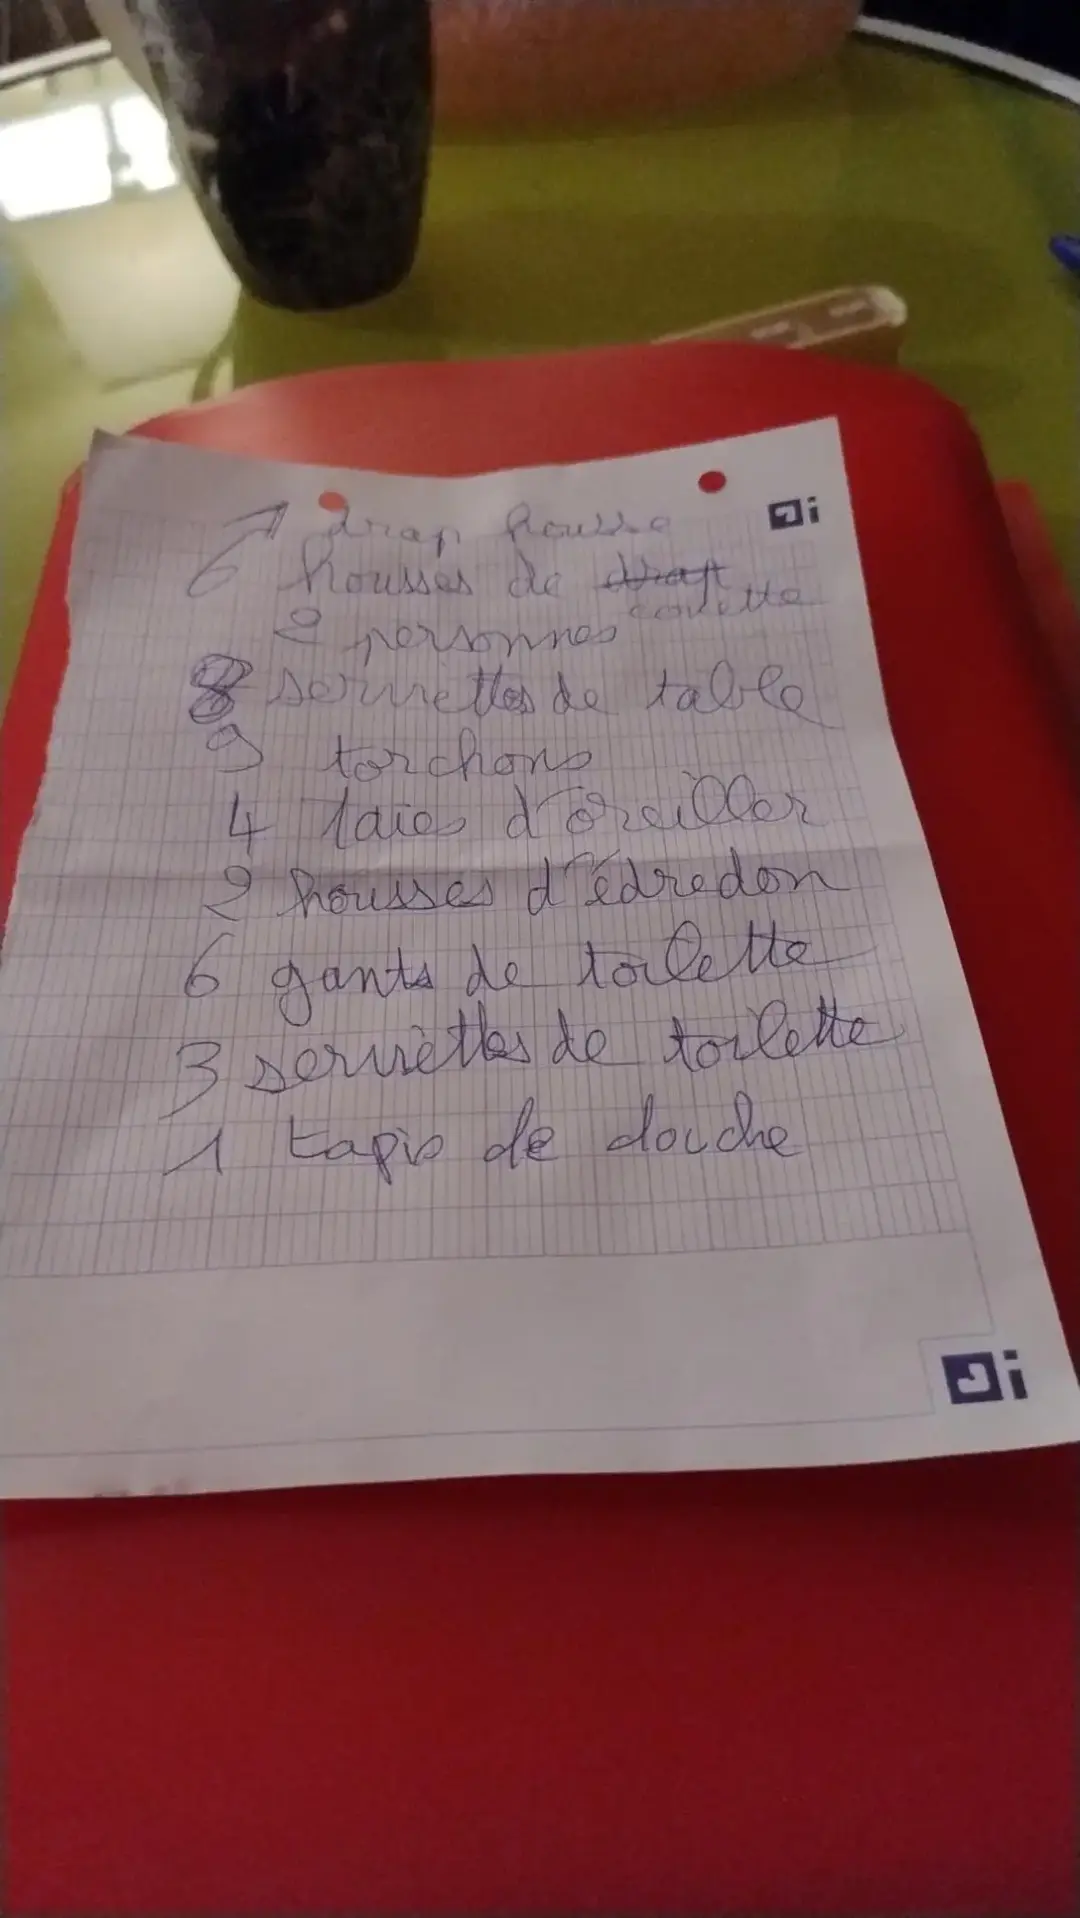 1 drap housse
6 housses de draft couette
2 personnes
8 serviettes de table
9 torchons
4 taies d'oreiller
2 housses d'édredon
6 gants de toilette
3 serviettes de toilette
1 tapis de douche